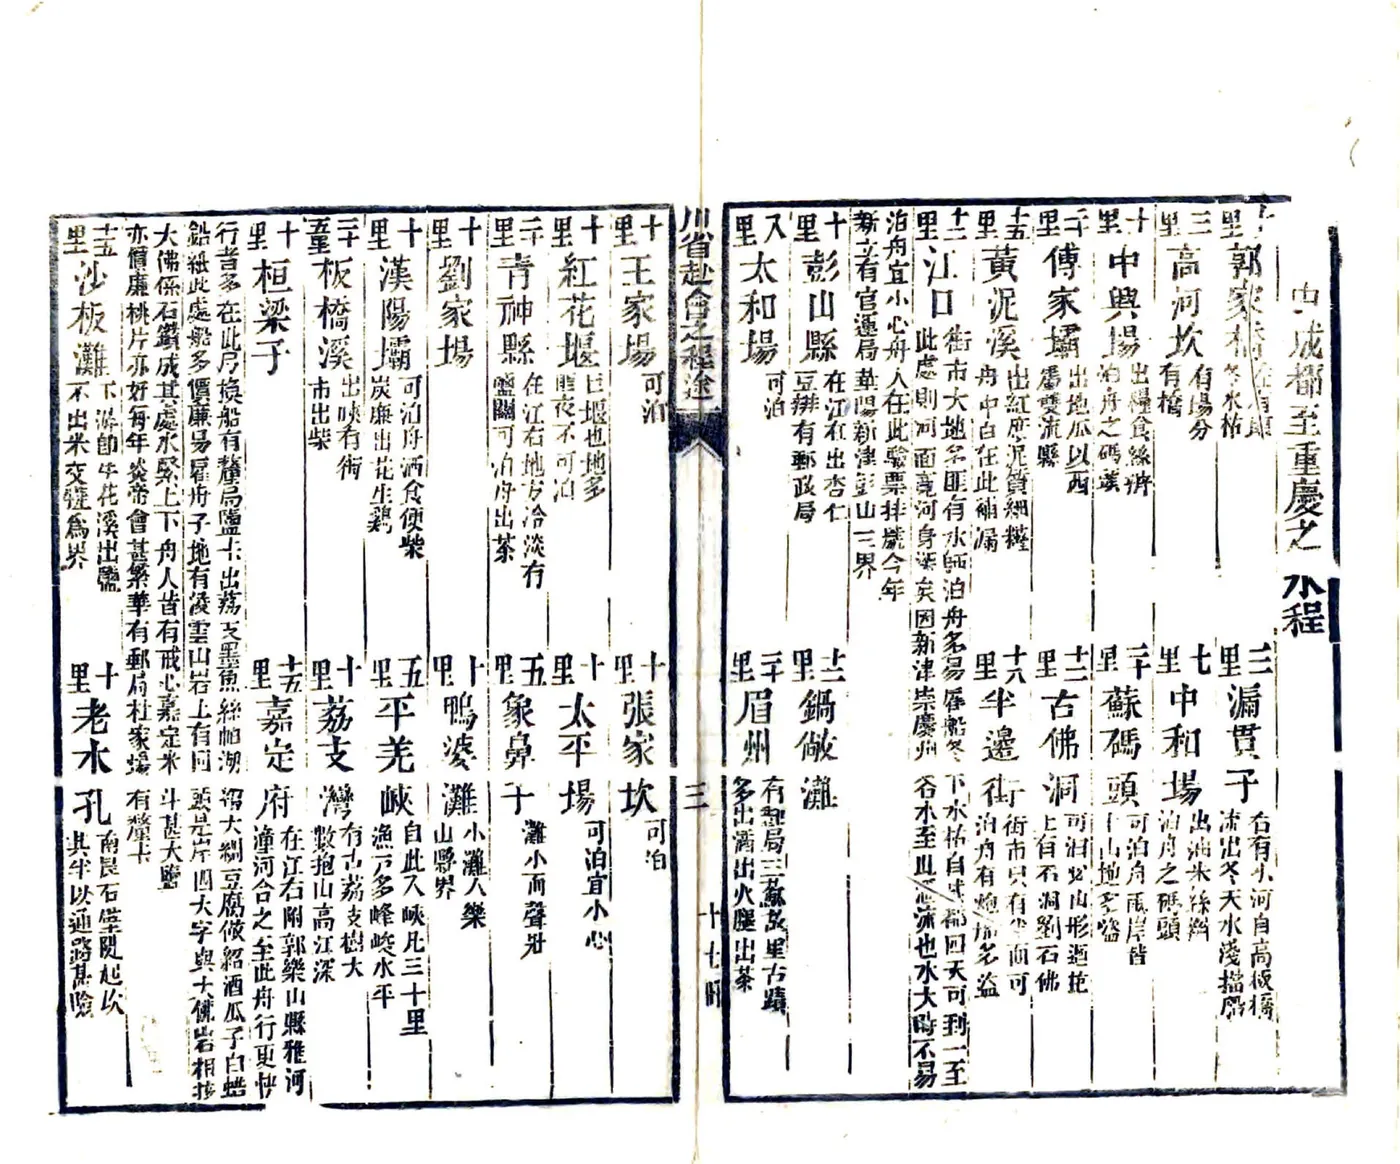 成都至重慶之水程
里 郭家橋 冬水枯
三里 漏貫子 右有小河自高板橋流出冬天水淺擋𡱝
三里 高河坎 有場分有橋
七里 中和場 出油米絲𦃃泊舟之碼頭
十里 中興場 出糧食絲𦃃泊舟之碼頭
二十里 蘇碼頭 可泊舟兩岸皆山地多
二十里 傅家壩 出地瓜以西屬雙流縣
十二里 古佛洞 可泊上有石洞劉石佛
十五里 黃泥溪 出紅庶泥質細舟中白在此補漏
十八里 半邊街 街市只有半面可泊舟有
十二里 江口 街市大地多匪有水師泊舟多易唇船冬下水枯自成都四天可到一至
此處則河面寬河身深矣因新津崇慶州谷水至此流也水大時不易
泊舟宜小心舟人在此驗票掛號今年
新立有官運局華陽新津彭山三界
十里 彭山縣 在江右出杏仁豆辦有郵政局
十二里 鍋敞灘
八里 太和場 可泊
二十里 眉州 有釐局三蘇故里古蹟多出酒出火腿出茶
川省赴合之程途 三
十里 王家場 可泊
十里 張家坎 可泊
十里 紅花堰 巨堰也地多匪夜不可泊
十里 太平場 可泊宜小心
二十里 青神縣 在江右地方冷淡有鹽關可泊舟出茶
五里 象鼻子 灘小而聲壯
十里 劉家場
十里 鴨婆灘 小灘入樂山縣界
十里 漢陽壩 可泊舟酒食便柴炭廉出花生鷄
五里 平羌峽 自此入峽凡三十里漁户多峰峻水平
二十五里 板橋溪 出峽有街市出柴
十里 荔支灣 有古荔支樹大數抱山高江深
十里 桓梁子
十五里 嘉定府 在江右附郭樂山縣雅河潼河合之至此舟行更快
行者多在此另換船有釐局鹽卡出荔支墨魚絲帕湖縐大綢豆腐做紹酒瓜子白蜡
鉛紙此處船多價廉易雇舟子地有凌雲山岩上有回頭是岸四大字與大佛岩相接
大佛係石鑽成其處水緊上下舟人皆有戒心嘉定米斗甚大鹽
亦價廉桃片亦好每年炎帝會甚繁華有郵局杜家場有釐卡
十五里 沙板灘 下游卽牛花溪出鹽不出米交犍爲界
十里 老木孔 南岸石壁陡起坎其半以通路甚險